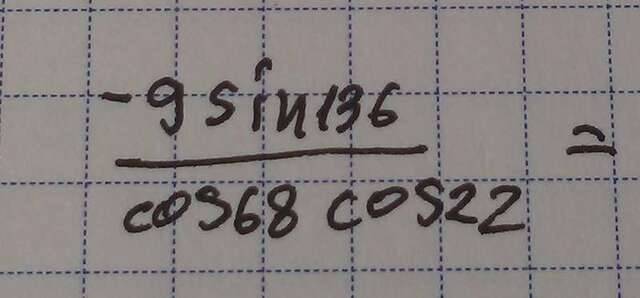 -9 sin136
cos68 cos22 =